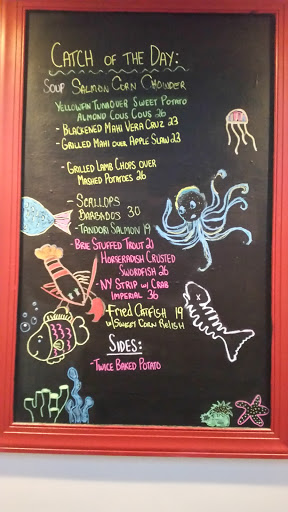 CATCH OF THE DAY:
SOUP SALMON CORN CHOWDER
YELLOWFIN TUNA OVER SWEET POTATO
ALMOND COUS COUS 26
- BLACKENED MAHI VERA CRUZ 23
- GRILLED MAHI OVER APPLE SLAW 23
- GRILLED LAMB CHOPS OVER
MASHED POTATOES 26
- SCALLOPS
BARBADOS 30
- TANDORI SALMON 19
- BRIE STUFFED TROUT 21
HORSERADISH CRUSTED
SWORDFISH 26
- NY STRIP W/ CRAB
IMPERIAL 36
FRIED CATFISH 19
W/SWEET CORN RELISH
SIDES:
- TWICE BAKED POTATO